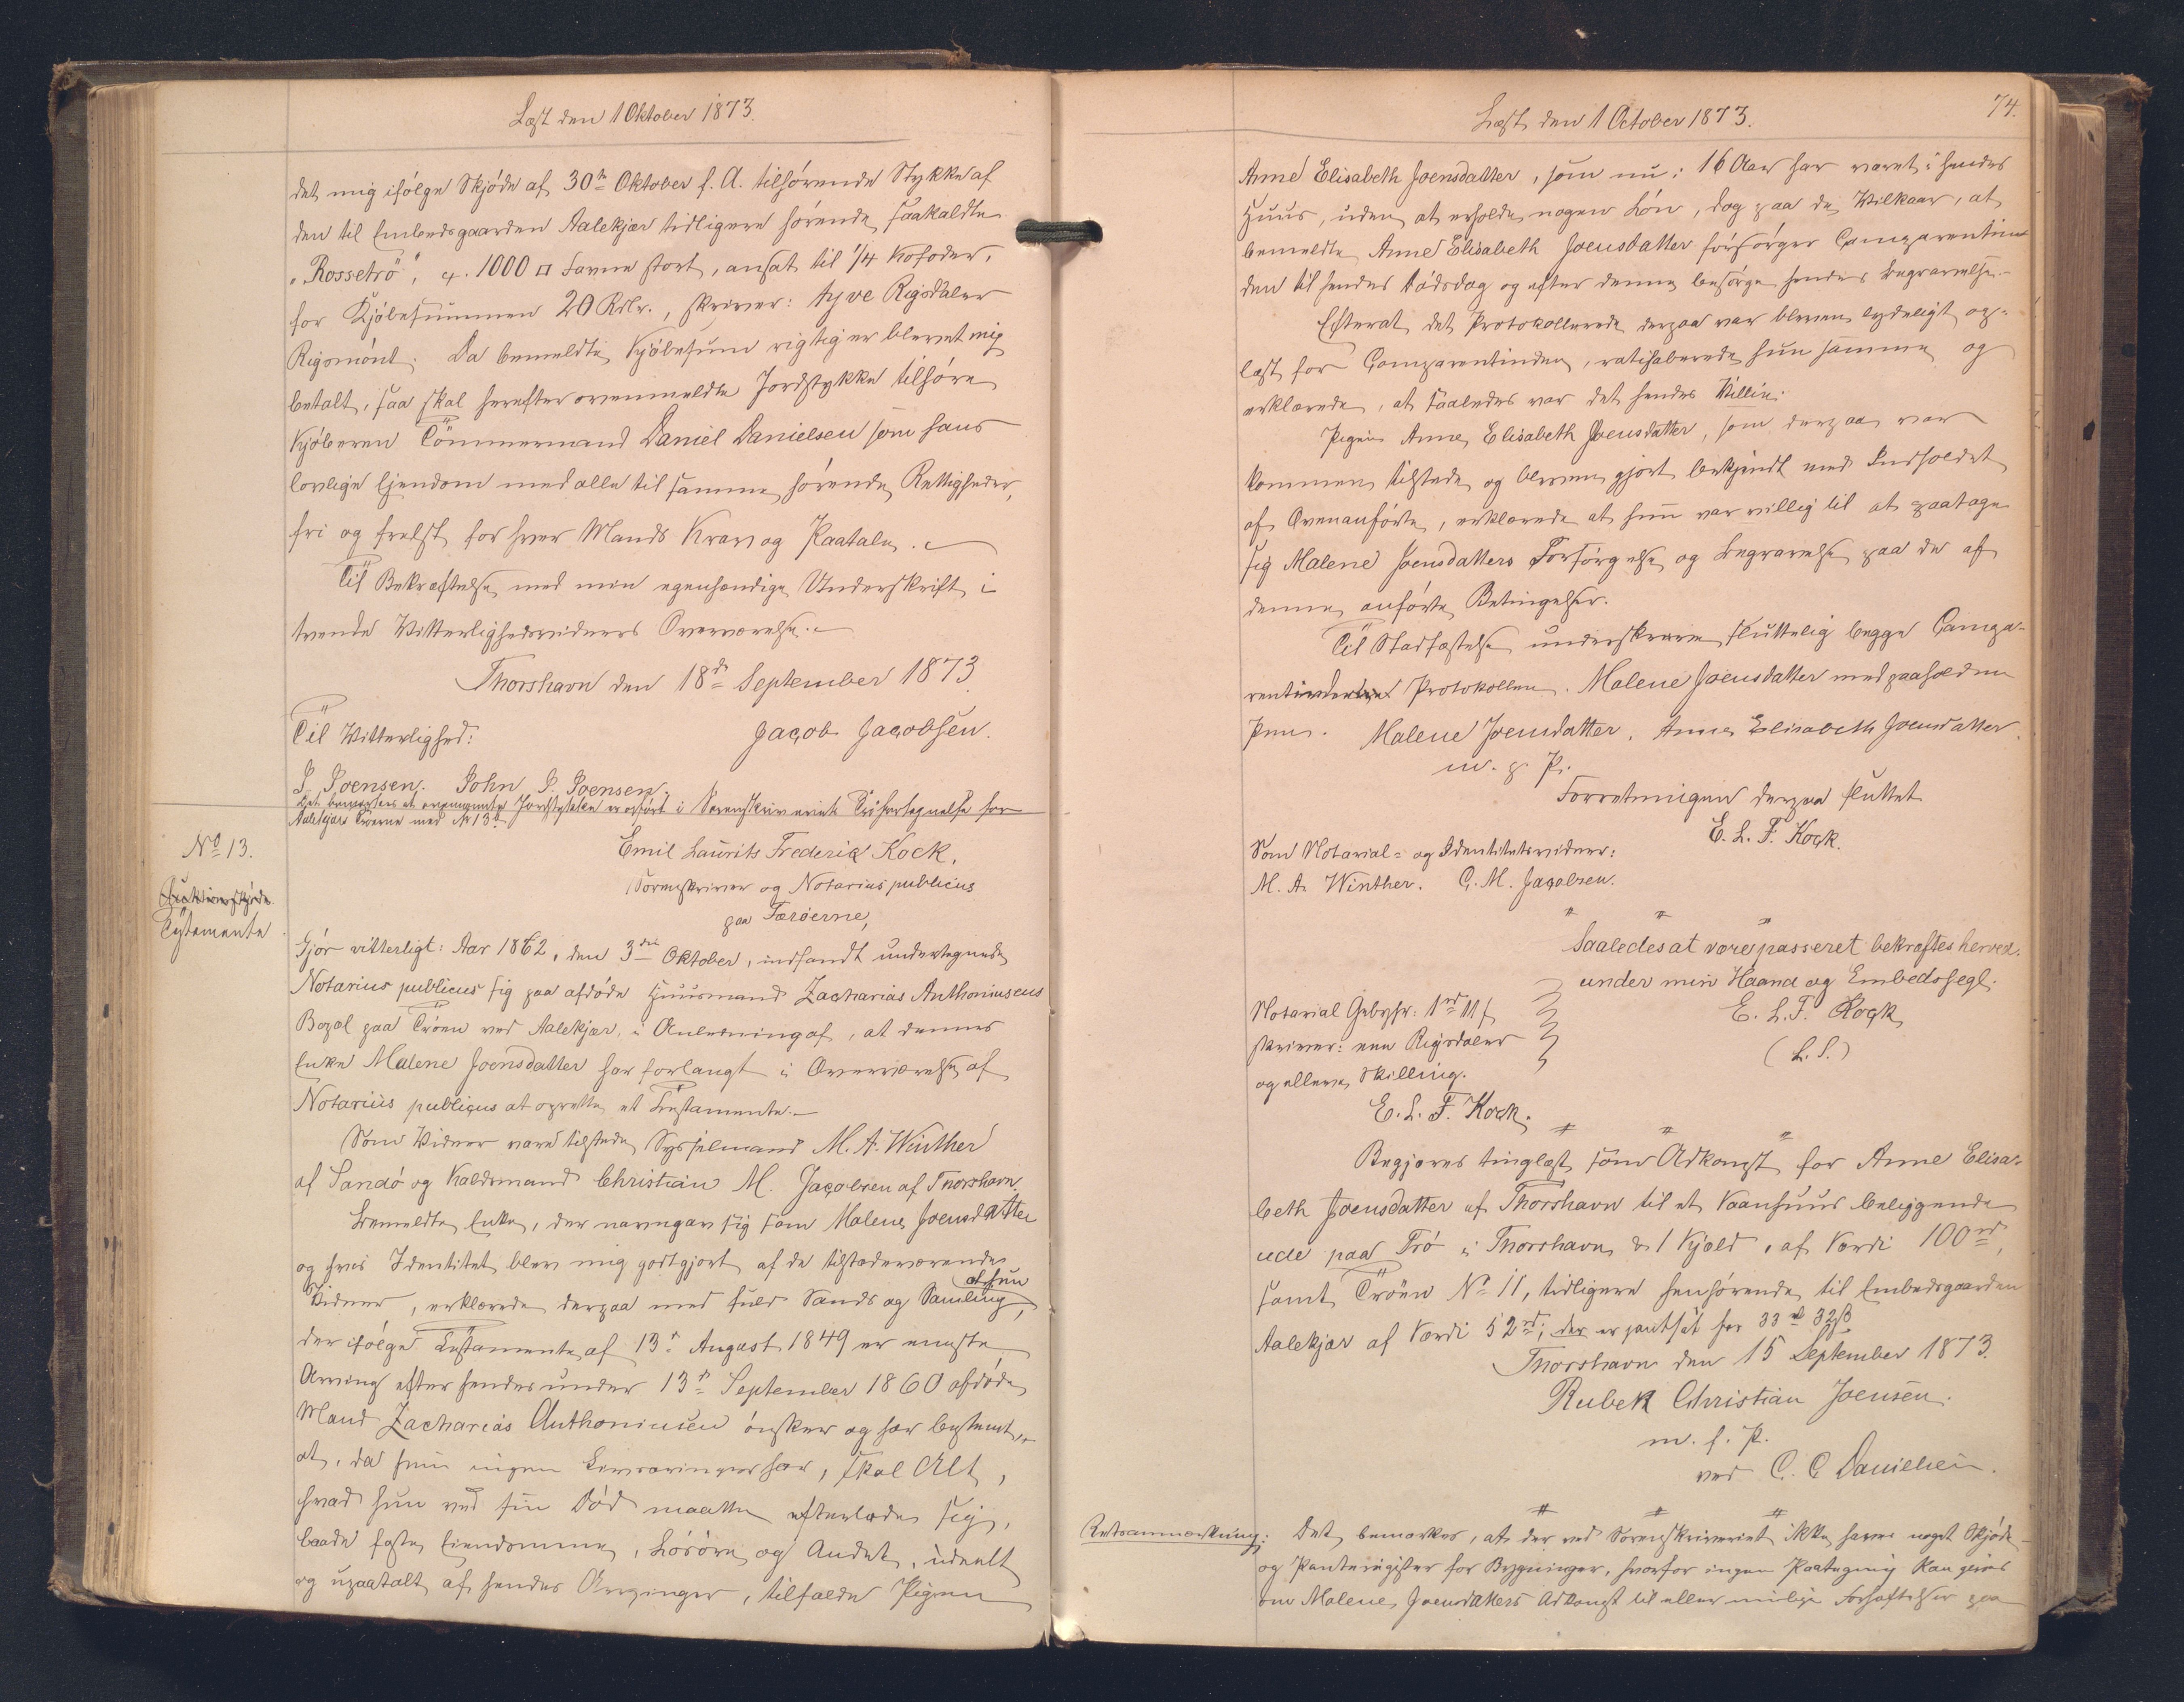 Læst den 1 Oktober 1873.
det mig ifølge Skjøde af 30te Oktober f. A. tilhørende Stykke af
den til Embedsgaarden Aalekjær tidligere hørende saakaldte
"Rossetrö", c. 1000 □ Favne stort, ansat til 1/4 Kofoder,
for Kjøbesummen 20 Rdlr., skriver: tyve Rigsdaler
Rigsmønt. Da bemeldte Kjøbesum rigtig er blevet mig
betalt, saa skal herefter ovenmeldte Jordstykke tilhøre
Kjøberen Tömmermand Daniel Danielsen som hans
lovlige Ejendom med alle til samme hørende Rettigheder,
fri og frelst for hver Mands Krav og Paatale.
Til Bekræftelse med min egenhændige Underskrift i
tvende Vitterlighedsvidners Overværelse.
Thorshavn den 18de September 1873.
Til Vitterlighed: Jacob Jacobsen.
J. Joensen. John J. Joensen.
Det bemærkes at ovennævnte Jordstykke er opført i Sorenskriveriets Fortegnelse for
Aalekjærs Trøerne med No 13
No 13.
Testamente
Emil Laurits Frederic Kock,
Sorenskriver og Notarius publicus
paa Færøerne,
Gjør vitterligt: Aar 1862, den 3die Oktober, indfandt undertegnede
Notarius publicus sig paa afdøde Huusmand Zacharias Anthoniusens
Bopæl paa Trøen ved Aalekjær, i Anledning af, at dennes
Enke Malene Joensdatter har forlangt i Overværelse af
Notarius publicus at oprette et Testamente.
Som Vidner vare tilstede Sysselmand M. A. Winther
af Sandö og Kaldsmand Christian M. Jacobsen af Thorshavn.
Bemeldte Enke, der navngav sig som Malene Joensdatter
og hvis Identitet blev mig godtgjort af de tilstedeværende
Vidner, erklærede derpaa med fuld Sands og Samling, at hun
der ifølge Testamente af 13de August 1849 er eneste
Arving efter hendes under 13de September 1860 afdøde
Mand Zacharias Anthoniusen ønsker og har bestemt,
at, da hun ingen Livsarvinger har, skal Alt,
hvad hun ved sin Død maatte efterlade sig,
baade faste Eiendomme, Løsøre og Andet, udeelt
og upaatalt af hendes Arvinger, tilfalde Pigen
Læst den 1 October 1873.
74.
Anne Elisabeth Joensdatter, som nu i 16 Aar har været i hendes
Huus, uden at erholde nogen Løn, dog paa de Vilkaar, at
bemeldte Anne Elisabeth Joensdatter forsørger Comparentinden
til hendes Dødsdag og efter denne besørge hendes Begravelse.
Efterat det Protokollerede derpaa var bleven tydeligt op-
læst for Comparentinden, ratihaberede hun samme og
erklærede, at saaledes var det hendes Villie.
Pigen Anne Elisabeth Joensdatter, som derpaa var
kommen tilstede og bleven gjort bekjendt med Indholdet
af Ovenanførte, erklærede at hun var villig til at paatage
sig Malene Joensdatters Forsørgelse og Begravelse paa de af
denne anførte Betingelser.
Til Stadfæstelse underskreve sluttelig begge Compa-
rentinderne Protokollen. Malene Joensdatter med paaholden
Pen. Malene Joensdatter, Anne Elisabeth Joensdatter.
m. p. P.
Forretningen derpaa sluttet
E. L. F. Kock.
Som Notarial- og Identitetsvidner:
M. A. Winther. C. M. Jacobsen.
" " "
Saaledes at være passeret bekræftes herved
under min Haand og Embedssegl.
E. L. F. Kock
(L. S.)
Notarial Gebyhr: 1rd 11 s
skriver: een Rigsdaler
og elleve Skilling.
E. L. F. Kock.
" " "
Begjæres tinglæst som Adkomst for Anne Elisa-
beth Joensdatter af Thorshavn til et Vaanhuus beliggende
ude paa Trö i Thorshavn & 1 Kjæld, af Værdi 100rd
samt Tröen No 11, tidligere henhørende til Embedsgaarden
Aalekjær af Værdi 52rd; der er pantsat for 33rd 32ß
Thorshavn den 15 September 1873.
Rubek Christian Joensen.
m. f. P.
ved C. C. Danielsen.
" " "
Retsanmærkning: Det bemærkes, at der ved Sorenskriveriet ikke haves noget Skjøde-
og Panteregister for Bygninger, hvorfor ingen Paategning kan gives
om Malene Joensdatters Adkomst til eller mulige Forhæftelser paa